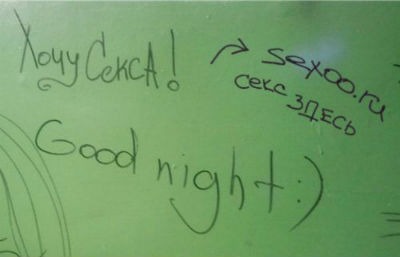 Хочу СекСА!
sexoo.ru
секс ЗДЕСЬ
Good night:)